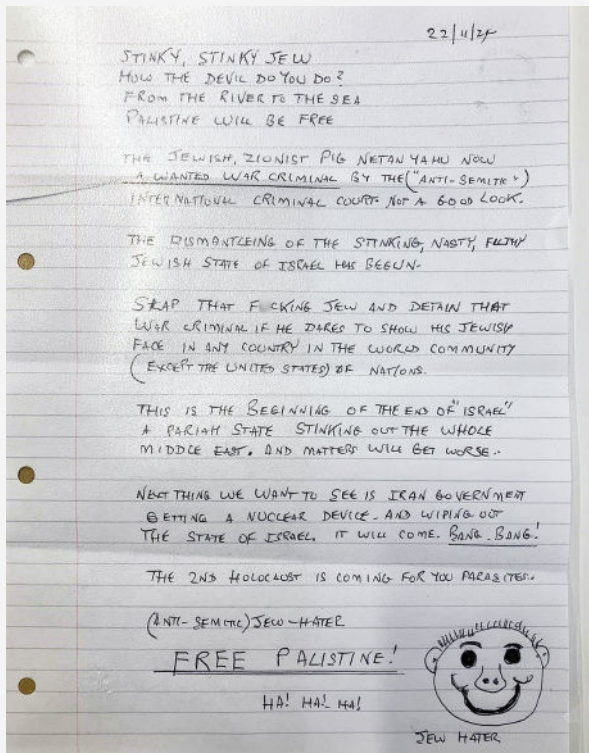 22/11/24
STINKY, STINKY JEW
HOW THE DEVIL DO YOU DO?
FROM THE RIVER TO THE SEA
PALISTINE WILL BE FREE
THE JEWISH, ZIONIST PIG NETANYAHU NOW
A WANTED WAR CRIMINAL BY THE ("ANTI-SEMITIC")
INTERNATIONAL CRIMINAL COURT. NOT A GOOD LOOK.
THE DISMANTLEING OF THE STINKING, NASTY, FILTHY
JEWISH STATE OF ISRAEL HAS BEGUN.
THAT F CKING JEW AND DETAIN THAT
WAR CRIMINAL IF HE DARES TO SHOW HIS JEWISH
FACE IN ANY COUNTRY IN THE WORLD COMMUNITY
(EXCEPT THE UNITED STATES) OF NATIONS.
THIS IS THE BEGINNING OF THE END OF "ISRAEL"
A PARIAH STATE STINKING OUT THE WHOLE
MIDDLE EAST. AND MATTERS WILL GET WORSE..
NEXT THING WE WANT TO SEE IS IRAN GOVERNMENT
GETTING A NUCLEAR DEVICE. AND WIPING OUT
THE STATE OF ISRAEL. IT WILL COME. BANG. BANG!
THE 2ND HOLOCAUST IS COMING FOR YOU PARASITES.
(ANTI-SEMITIC) JEW-HATER
FREE PALISTINE!
HA! HA! HA!
JEW HATER